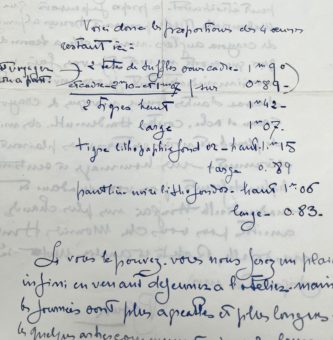 Voici donc les proportions des 4 œuvres
restant ici:
2 tête de buffles pour cadre - 1m90
sur 0m89-
2 tigres haut 1m42-
large 1m07.
tigre lithographie fond or - haut 1m15
large 0.89
panthère noire litho fond or - haut 1m06
large - 0.83-
Si vous le pouvez, vous nous ferez un plaisir
infini en venant déjeuner à l'atelier, main
les journées sont plus agréables et plus longues
les quelques